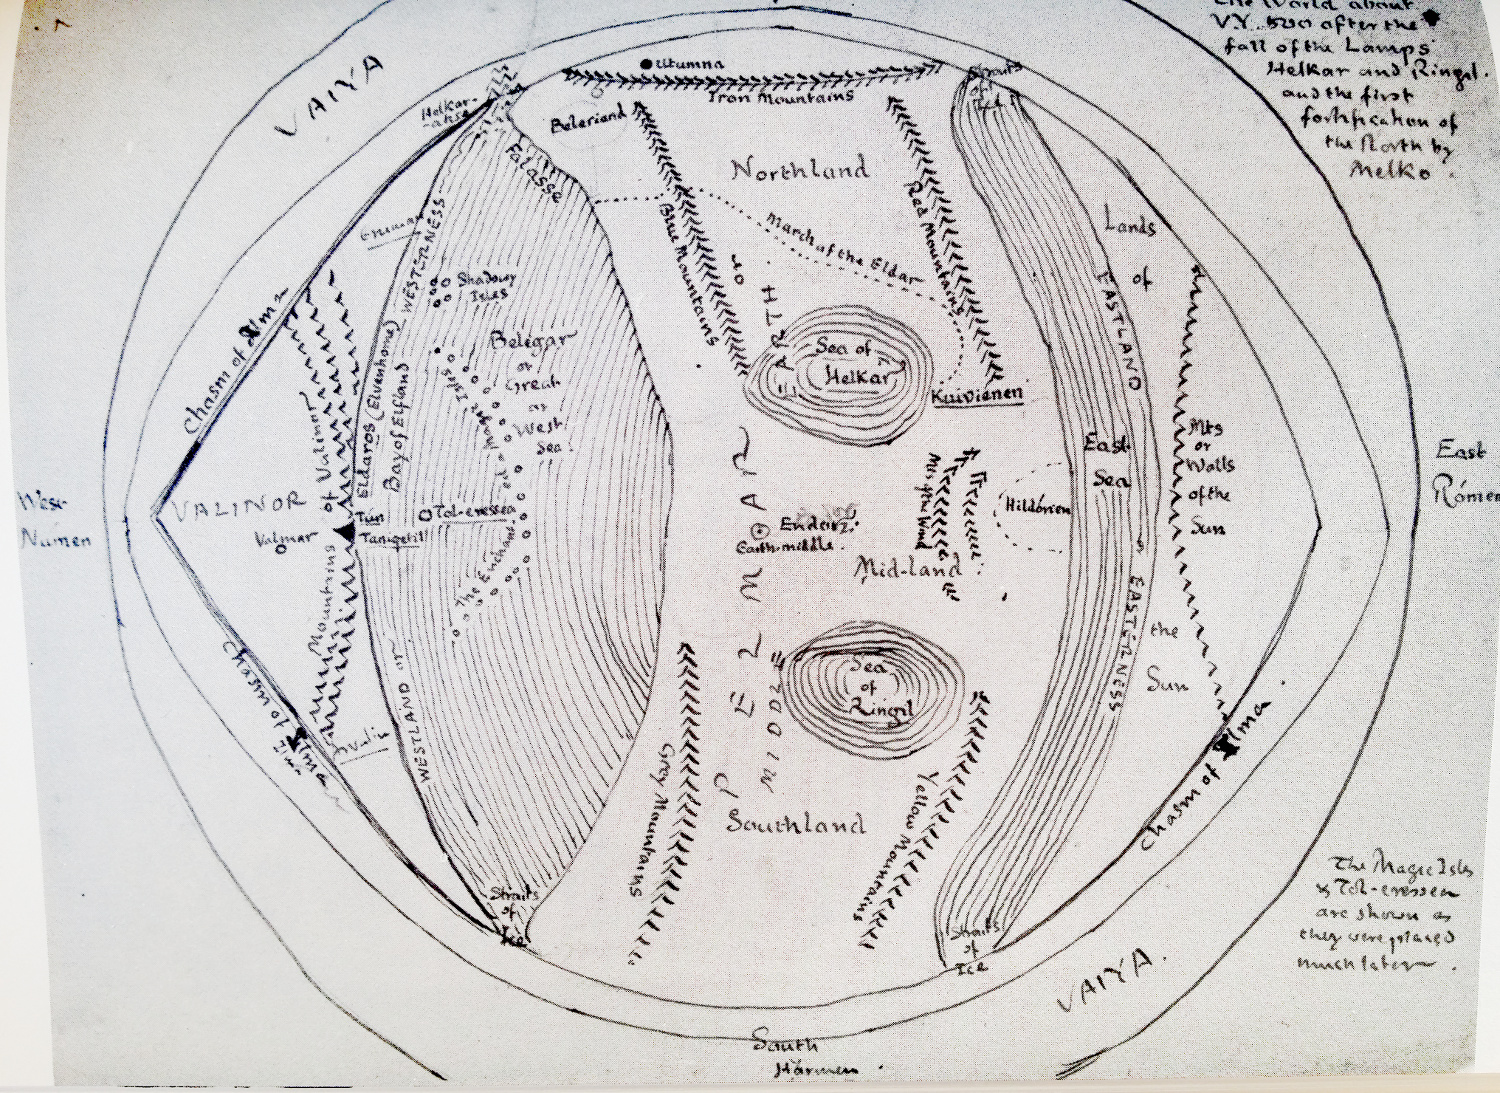 The World about
V.Y. 500 after the
fall of the Lamps
Helkar and Ringil
and the first
fortification of
the North by
Melko.
VAIYA
Utumna
Iron Mountains
Straits
of
Ice
Helkar-
akse
Beleriand
Falasse
Northland
Eruman
WESTERNESS
Blue Mountains
March of the Eldar
Red Mountains
Lands
of
EASTLAND
or
EARTH
Shadowy
Isles
Belegar
or
Great
or
West
Sea
Magic Isles
or the
The Enchant.
Sea of
Helkar
Kuiviénen
Chasm of Ilma
Mountains of Valinor
Eldaros (Elvenhome)
Bay of Elfland
East
Sea
Mts
or
Walls
of the
Sun
East
Rómen
West
Númen
VALINOR
Valmar
Tún
Taniquetil
Tol-eressëa
Mts of the Wind
Hildórien
Endor
Earth-middle
Mid-land
PELMAR
EASTERNESS
the
Sun
Chasm of Ilma
Ilma
WESTLAND or
Sea
of
Ringil
Grey Mountains
Southland
Yellow Mountains
Chasm of Ilma
Straits
of
Ice
Straits
of
Ice
The Magic Isles
& Tol-eressëa
are shown as
they were placed
much later.
VAIYA.
South
Harmen